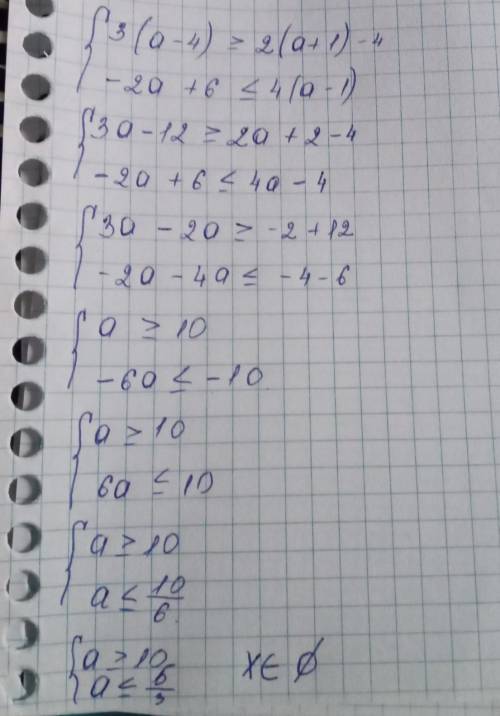 3(a-4) ≥ 2(a+1)-4
-2a+6 ≤ 4(a-1)
3a-12 ≥ 2a+2-4
-2a+6 ≤ 4a-4
3a-2a ≥ -2+12
-2a-4a ≤ -4-6
a ≥ 10
-6a ≤ -10
a ≥ 10
6a ≤ 10
a ≥ 10
a ≤ 10/6
a ≥ 10
a ≤ 5/3 x∈∅